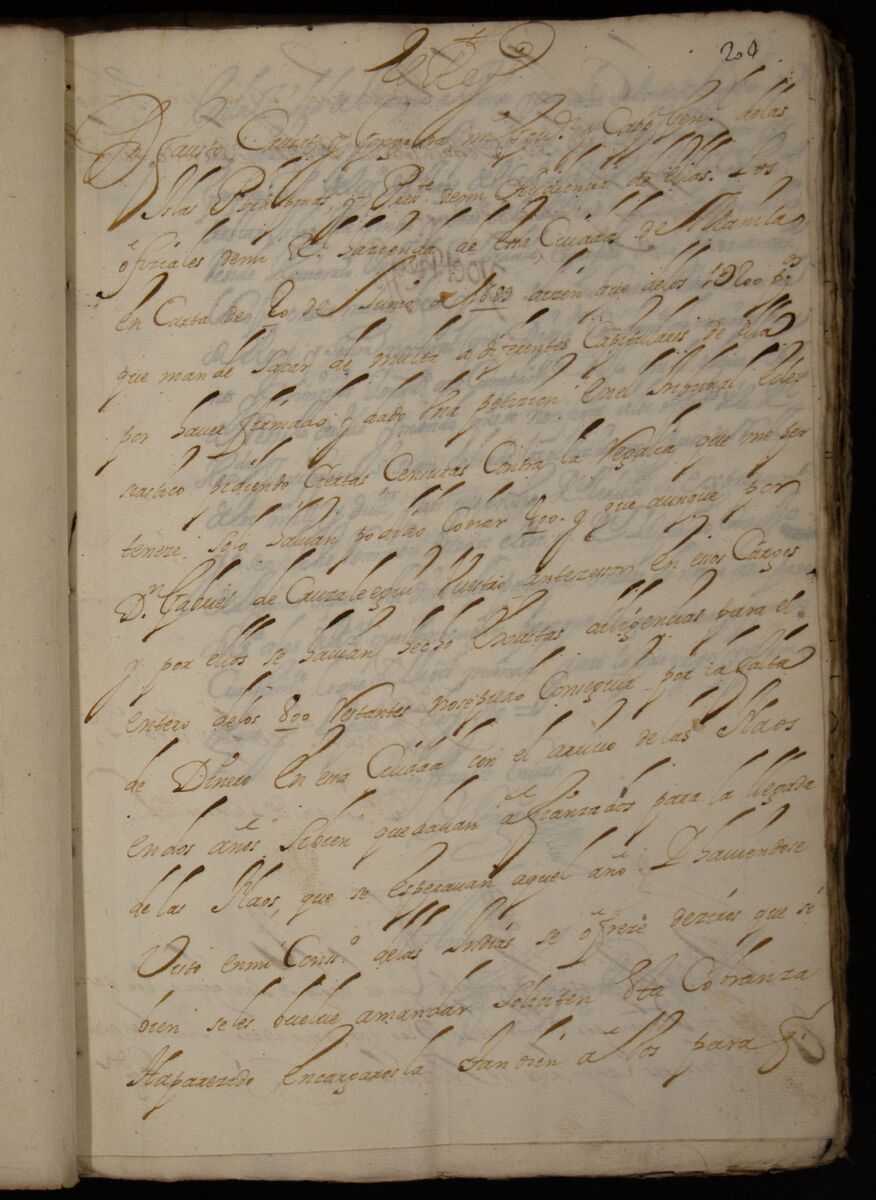 20
El Rey
Dn. fausto Cruzat y Gongora mi Gou.or y Capn. Gen.l delas
Islas Phelipinas, y Press.te demi Audiencia de ellas. Los
ofiziales demi Rl. hazienda de essa Ciudad de Manila
en Carta de 20 de Junio de 1689 dizen que delos 1U200 ps.
que mande sacar de multa a diferentes Capitulares de ella
por hauer firmado, y dado una petizion enel tribunal Ecle-
siastico pidiendo Ciertas Censuras Contra la Regalia que me per
teneze, solo hauian podido Cobrar 400. y que aunque por
Dn. Gabriel de Curzaleegui Vuestro antezessor en esos Cargos
y por ellos se hauian hecho Exquisitas diligencias para el
entero delos 800 restantes nosepudo Conseguir por la falta
de Dinero en essa Ciudad con el arriuo de las Naos
endos años sibien quedauan afianzados para la llegada
de las Naos, que se esperauan aquel año. Y hauiendose
Visto enmi Conss.o delas Indias se ofreze deziros que si
bien seles buelue amandar soliciten esta Cobranza
Haparezido encargarosla tambien a Vos para q.